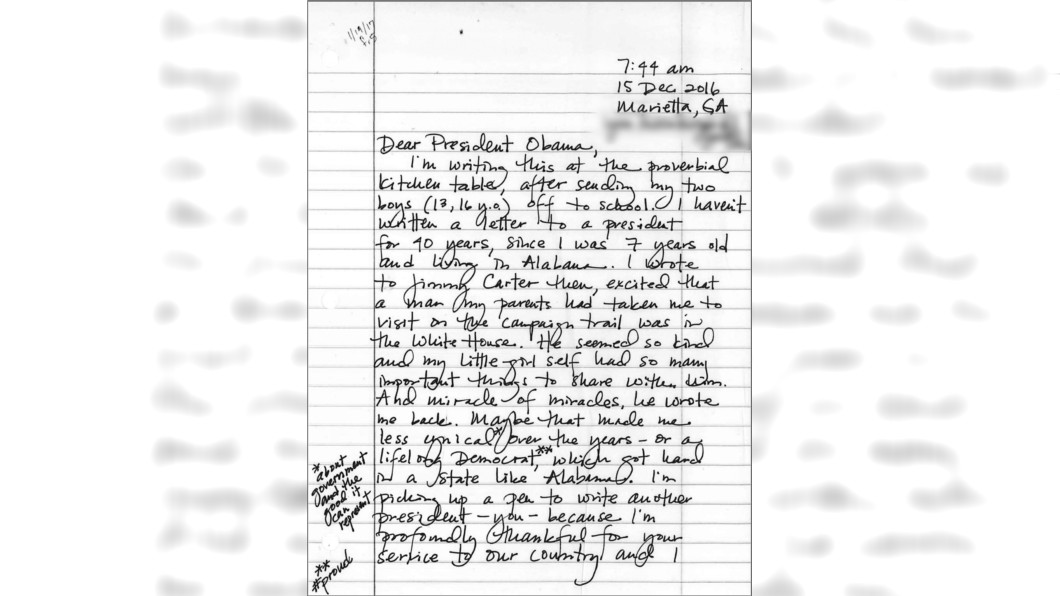 1/19/17
7:44 am
15 Dec 2016
Marietta, GA
Dear President Obama,
I'm writing this at the proverbial
kitchen table, after sending my two
boys (13, 16 y.o.) off to school. I haven't
written a letter to a president
for 40 years, since I was 7 years old
and living in Alabama. I wrote
to Jimmy Carter then, excited that
a man my parents had taken me to
visit on the campaign trail was in
the White House. He seemed so kind
and my little girl self had so many
important things to share with him.
And miracle of miracles, he wrote
me back. Maybe that made me
less cynical* over the years – or a
lifelong Democrat,** which got hard
in a state like Alabama. I'm
picking up a pen to write another
president – you – because I'm
profoundly thankful for your
service to our country and I
*about
government
and the
good it
can
represent
**
#proud